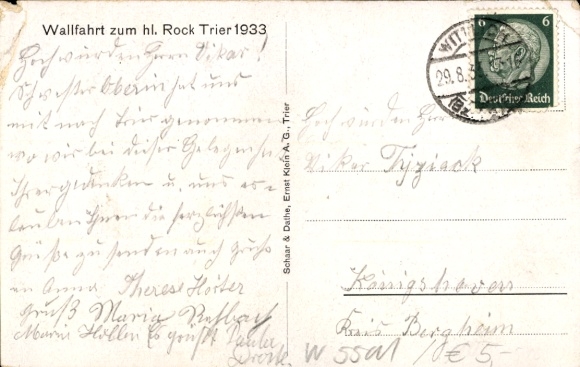 Wallfahrt zum hl. Rock Trier 1933
Hochwürden Herrn Vikar!
Schwester Oberin hat uns
mit nach Trier genommen
wo wir bei dieser Gelegenheit
Ihrer gedenken u. uns er-
lauben Ihnen die herzlichsten
Grüße zu senden auch Gruß
an Anna Therese Hörter
Gruß Maria Rehbach
Maria Hollen Es grüßt Paula
Schaar & Dathe, Ernst Klein A. G., Trier
6 6
Deutsches Reich
WITTLICH
29.8.3
Hochwürden Herr
Vikar Tyziack
Königshoven
Kreis Bergheim
W 5501
€ 5,-